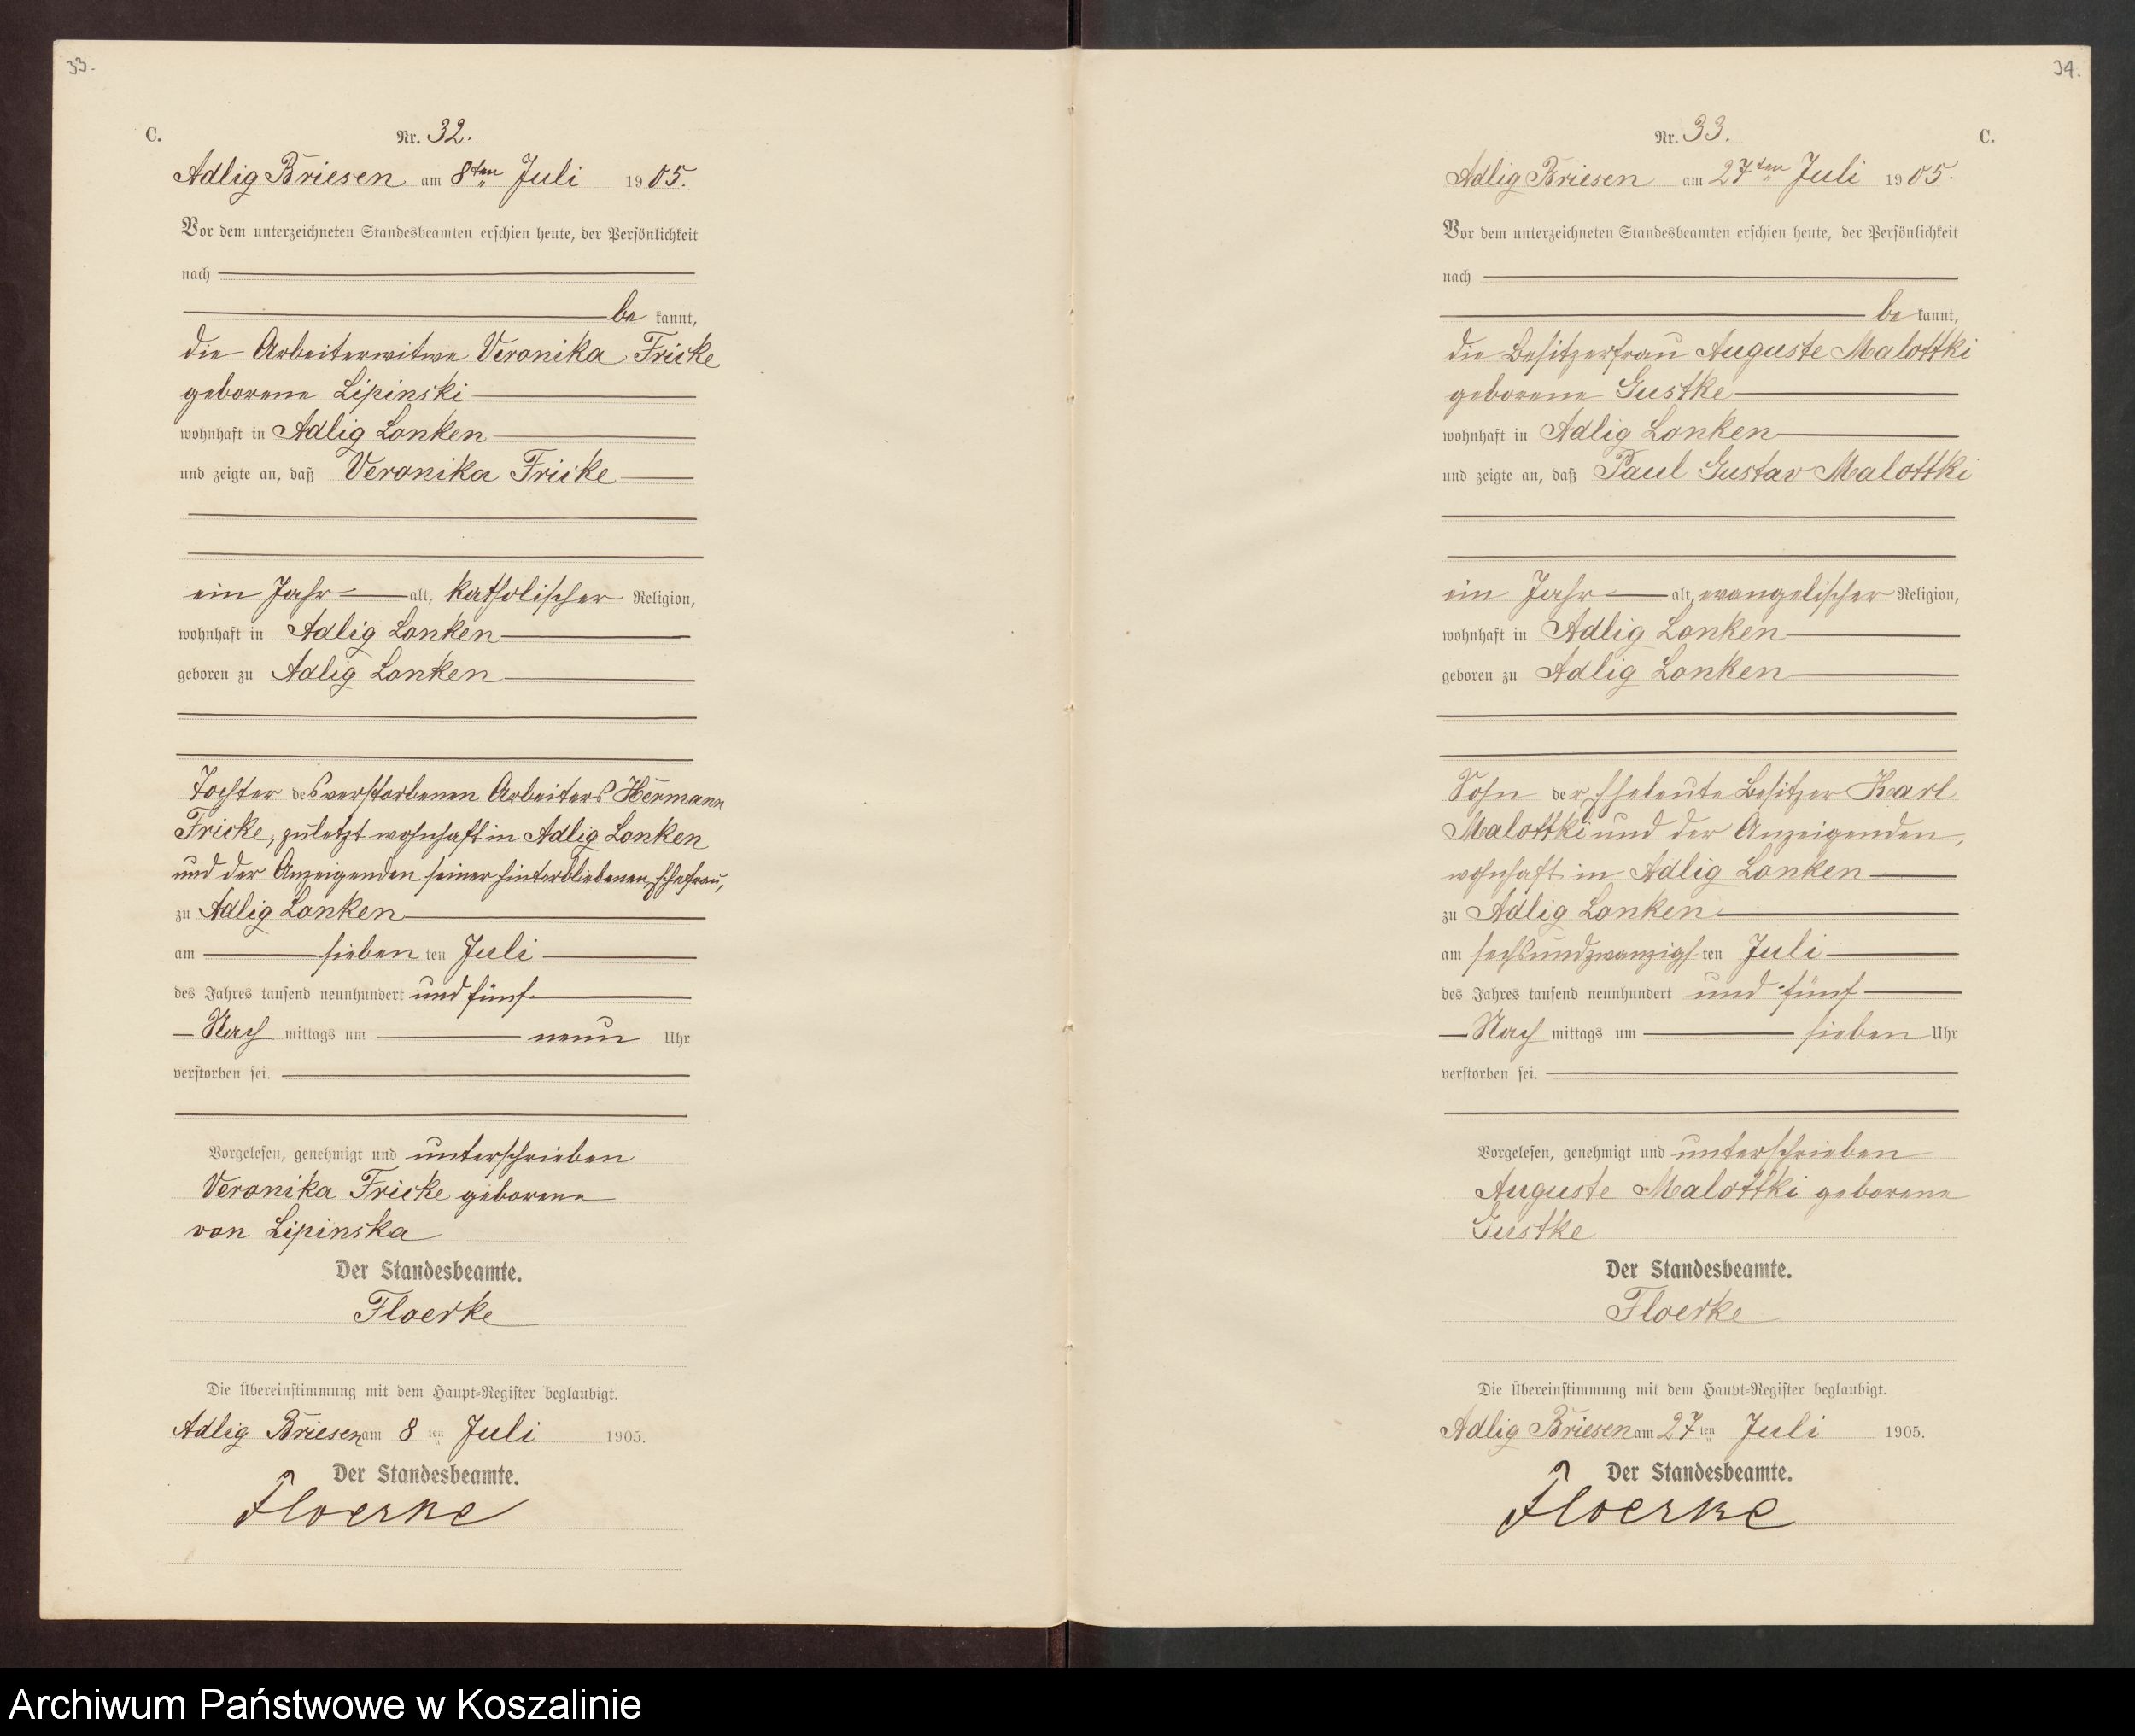 33.
C.
Nr. 32.
Adlig Briesen am 8ten Juli 1905.
Vor dem unterzeichneten Standesbeamten erschien heute, der Persönlichkeit
nach
be kannt,
die Arbeiterwitwe Veronika Fricke
geborene Lipinski
wohnhaft in Adlig Lonken
und zeigte an, daß Veronika Fricke
ein Jahr alt, katholischer Religion,
wohnhaft in Adlig Lonken
geboren zu Adlig Lonken
Tochter des verstorbenen Arbeiters Hermann
Fricke, zuletzt wohnhaft in Adlig Lonken
und der Anzeigenden, seiner hinterbliebenen Ehefrau,
zu Adlig Lonken
am sieben ten Juli
des Jahres tausend neunhundert und fünf
Nach mittags um neun Uhr
verstorben sei.
Vorgelesen, genehmigt und unterschrieben
Veronika Fricke geborene
von Lipinska
Der Standesbeamte.
Floerke
Die Übereinstimmung mit dem Haupt-Register beglaubigt.
Adlig Briesen am 8 ten Juli 1905.
Der Standesbeamte.
Floerke
34.
Nr. 33.
C.
Adlig Briesen am 27ten Juli 1905.
Vor dem unterzeichneten Standesbeamten erschien heute, der Persönlichkeit
nach
be kannt,
die Besitzerfrau Auguste Malottki
geborene Gustke
wohnhaft in Adlig Lonken
und zeigte an, daß Paul Gustav Malottki
ein Jahr alt, evangelischer Religion,
wohnhaft in Adlig Lonken
geboren zu Adlig Lonken
Sohn der Eheleute Besitzer Karl
Malottki und der Anzeigenden,
wohnhaft in Adlig Lonken
zu Adlig Lonken
am sechsundzwanzigs ten Juli
des Jahres tausend neunhundert und fünf
Nach mittags um sieben Uhr
verstorben sei.
Vorgelesen, genehmigt und unterschrieben
Auguste Malottki geborene
Gustke
Der Standesbeamte.
Floerke
Die Übereinstimmung mit dem Haupt-Register beglaubigt.
Adlig Briesen am 27 ten Juli 1905.
Der Standesbeamte.
Floerke
Archiwum Państwowe w Koszalinie